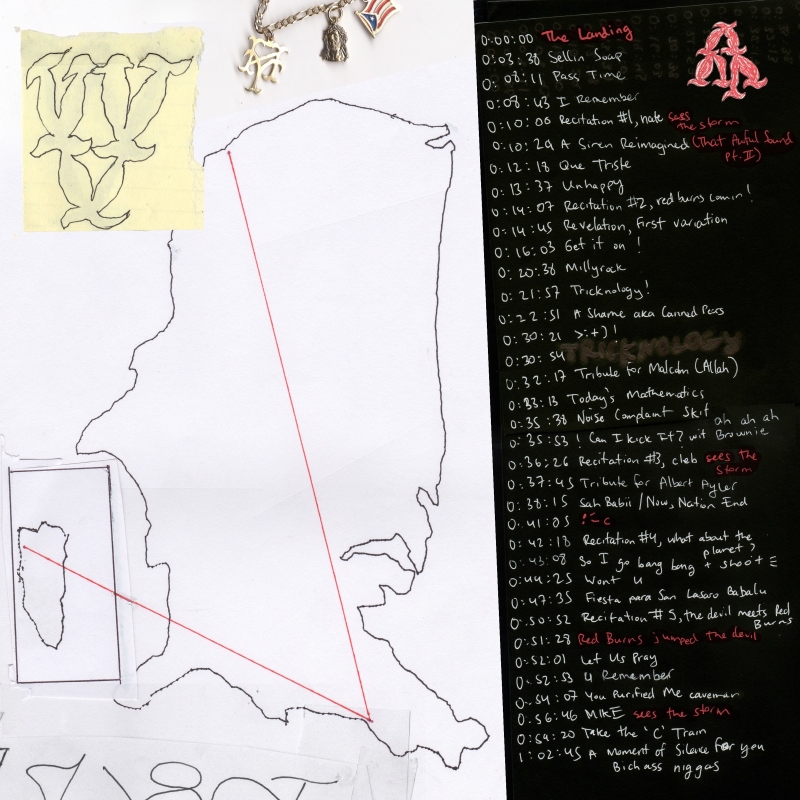 0:00:00 The Landing
0:03:38 Sellin Soap
0:08:11 Pass Time
0:08:43 I Remember
0:10:06 Recitation #1, nate sees
the storm
0:10:29 A Siren Reimagined (That Awful Sound
pt. II)
0:12:18 Que Triste
0:13:37 Unhappy
0:14:07 Recitation #2, red burns comin'!
0:14:45 Revelation, First variation
0:16:03 Get it on!
0:20:38 Millyrock
0:21:57 Tricknology!
0:22:51 A Shame aka Canned Pears
0:30:21 >:+)!
0:30:54 TRICKNOLOGY
0:32:17 Tribute for Malcolm (Allah)
0:33:13 Today's Mathematics
0:35:38 Noise Complaint Skit
0:35:53 ! Can I kick It? wit Brownie
ah ah ah
0:36:26 Recitation #3, cleb sees the
storm
0:37:45 Tribute for Albert Ayler
0:38:15 Sah Babii / Now, Nation End
0:41:05
0:42:18 Recitation #4, what about the
planet?
0:43:08 So I go bang bong + shoot
0:44:25 Wont U
0:47:35 Fiesta para San Lasaro Babalu
0:50:52 Recitation #5, the devil meets Red
Burns
0:51:28 Red Burns jumped the devil
0:52:01 Let Us Pray
0:52:53 U Remember
0:54:07 You Purified Me caveman
0:56:46 MIKE sees the storm
0:59:20 Take the 'C' Train
1:02:45 A Moment of Silence for you
Bichass niggas